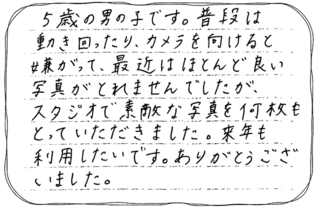 5歳の男の子です。普段は
動き回ったり、カメラを向けると
嫌がって、最近はほとんど良い
写真がとれませんでしたが、
スタジオで素敵な写真を何枚も
とっていただきました。来年も
利用したいです。ありがとうござ
いました。